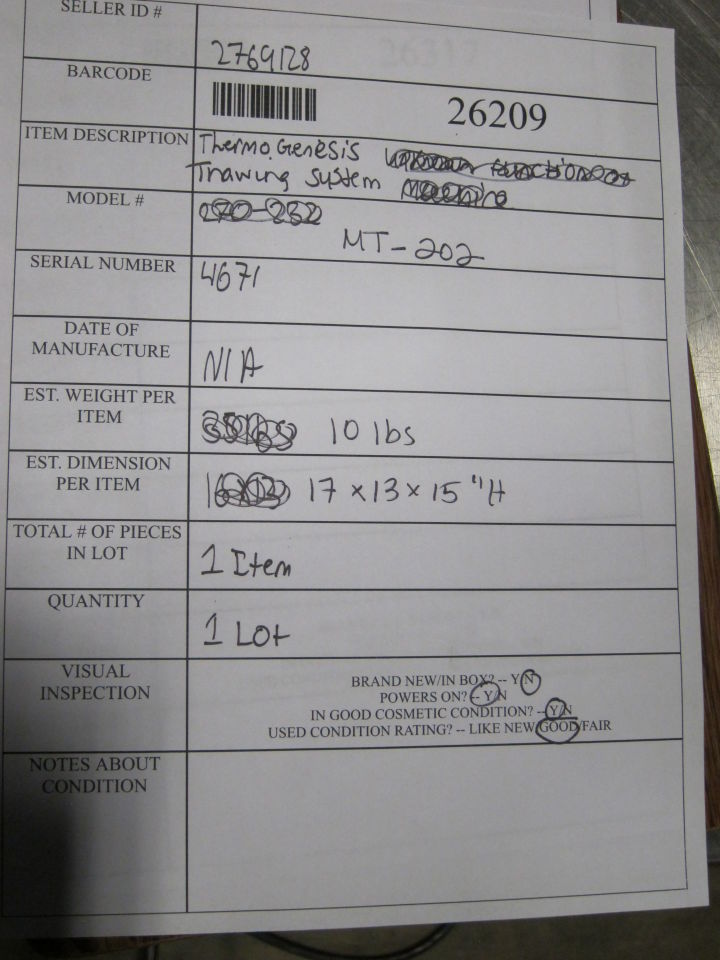 SELLER ID #
2769128
BARCODE
26209
ITEM DESCRIPTION
ThermoGenesis
Thawing System
MODEL #
MT-202
SERIAL NUMBER
4671
DATE OF
MANUFACTURE
N/A
EST. WEIGHT PER
ITEM
10 lbs
EST. DIMENSION
PER ITEM
17 x 13 x 15 "H
TOTAL # OF PIECES
IN LOT
1 Item
QUANTITY
1 Lot
VISUAL
INSPECTION
BRAND NEW/IN BOX? -- Y/N
POWERS ON? -- Y/N
IN GOOD COSMETIC CONDITION? -- Y/N
USED CONDITION RATING? -- LIKE NEW/GOOD/FAIR
NOTES ABOUT
CONDITION